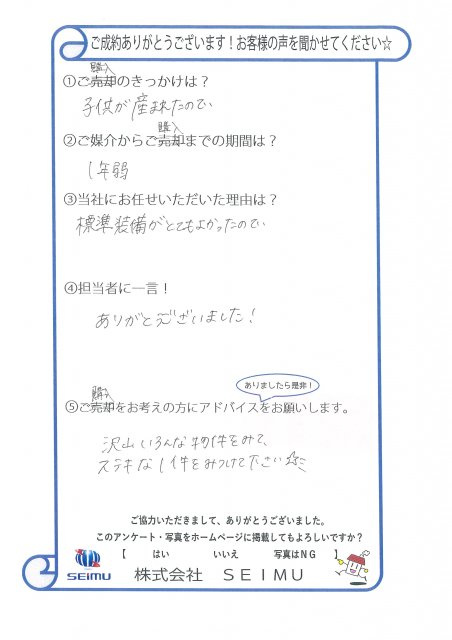 ご成約ありがとうございます！お客様の声を聞かせてください☆
購入
①ご売却のきっかけは？
子供が産まれたので
購入
②ご媒介からご売却までの期間は？
1年弱
③当社にお任せいただいた理由は？
標準装備がとてもよかったので
④担当者に一言！
ありがとうございました！
ありましたら是非！
購入
⑤ご売却をお考えの方にアドバイスをお願いします。
沢山いろんな物件をみて、
ステキな1件をみつけて下さい☆ミ
ご協力いただきまして、ありがとうございました。
このアンケート・写真をホームページに掲載してもよろしいですか？
【　はい　いいえ　写真はNG　】
SEIMU
株式会社　ＳＥＩＭＵ